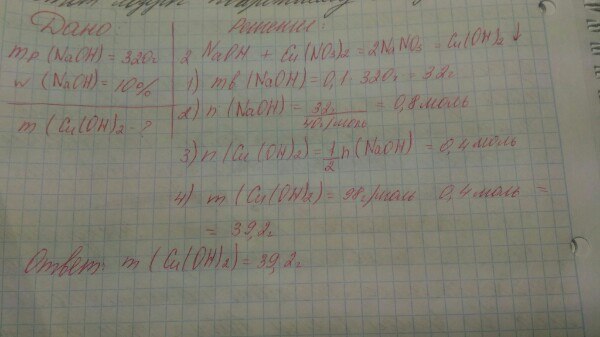 Дано:
mр (NaOH) = 320г
w (NaOH) = 10%
m (Cu(OH)2 - ?
Решение:
2 NaOH + Cu(NO3)2 = 2NaNO3 = Cu(OH)2 ↓
1) mв (NaOH) = 0,1 · 320г = 32г
2) n (NaOH) = 32г / 40г/моль = 0,8 моль
3) n (Cu(OH)2) = 1/2 n (NaOH) = 0,4 моль
4) m (Cu(OH)2) = 98г/моль 0,4 моль =
= 39,2г
Ответ: m (Cu(OH)2) = 39,2г